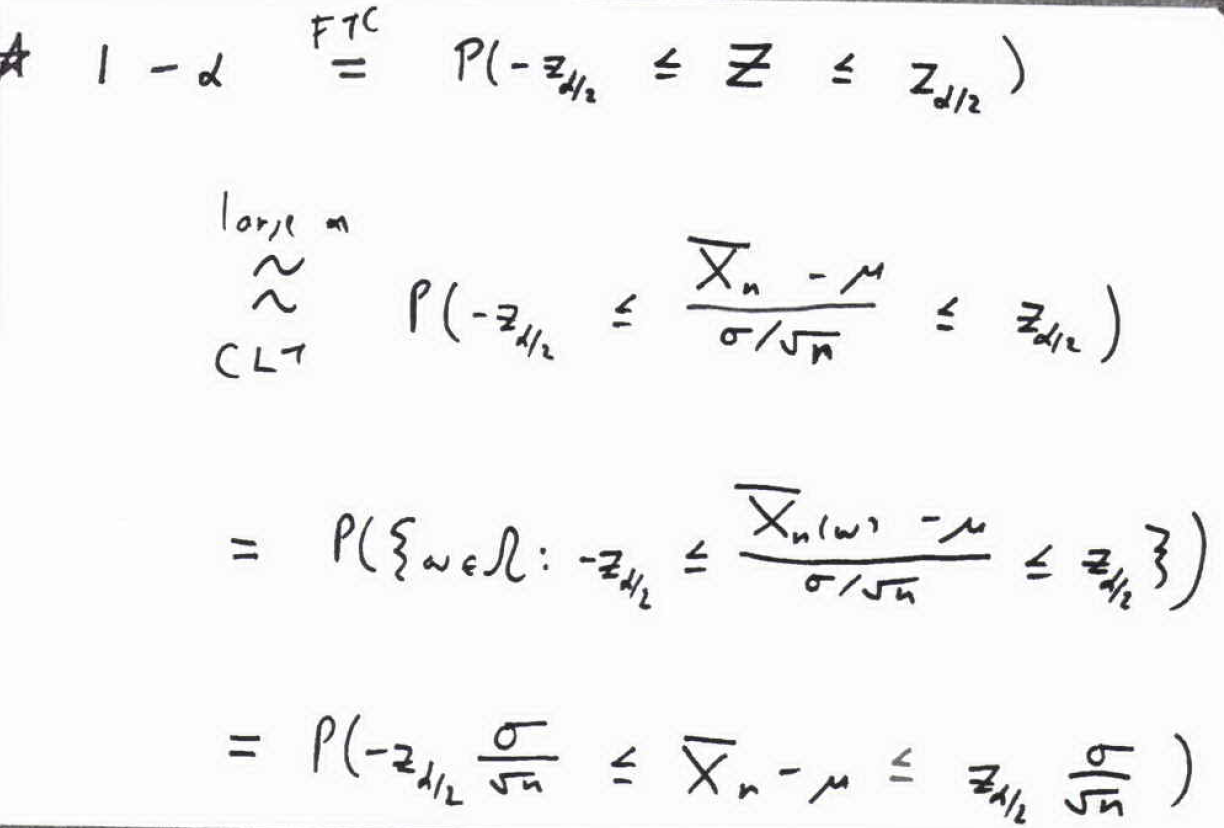 ★ 1 - α \overset{FTC}{=} P(-z_{α/2} ≤ Z ≤ z_{α/2})
large n
≈ P(-z_{α/2} ≤ \frac{\overline{X}_n - μ}{σ/√n} ≤ z_{α/2})
CLT
= P({ω ∈ Ω: -z_{α/2} ≤ \frac{\overline{X}_n(ω) - μ}{σ/√n} ≤ z_{α/2}})
= P(-z_{α/2} \frac{σ}{√n} ≤ \overline{X}_n - μ ≤ z_{α/2} \frac{σ}{√n})